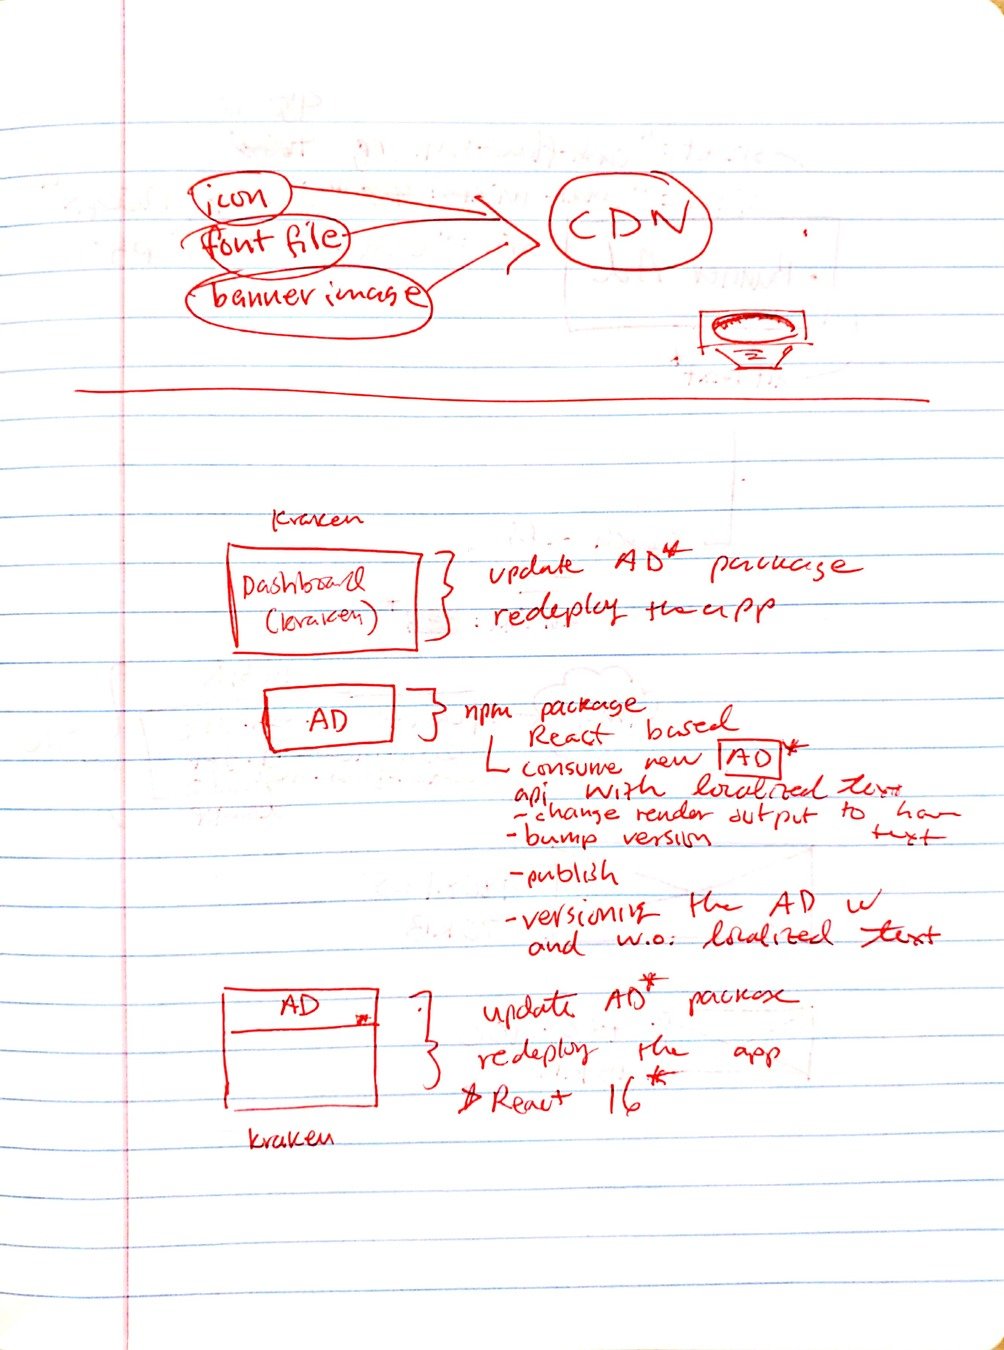 icon
font file
banner image
CDN
kraken
Dashboard
(kraken)
update AD* package
redeploy the app
AD
npm package
React based
consume new AD*
api with localized text
- change render output to have
text
- bump version
- publish
- versioning the AD w
and w.o. localized text
AD
*
update AD* package
redeploy the app
React 16*
kraken